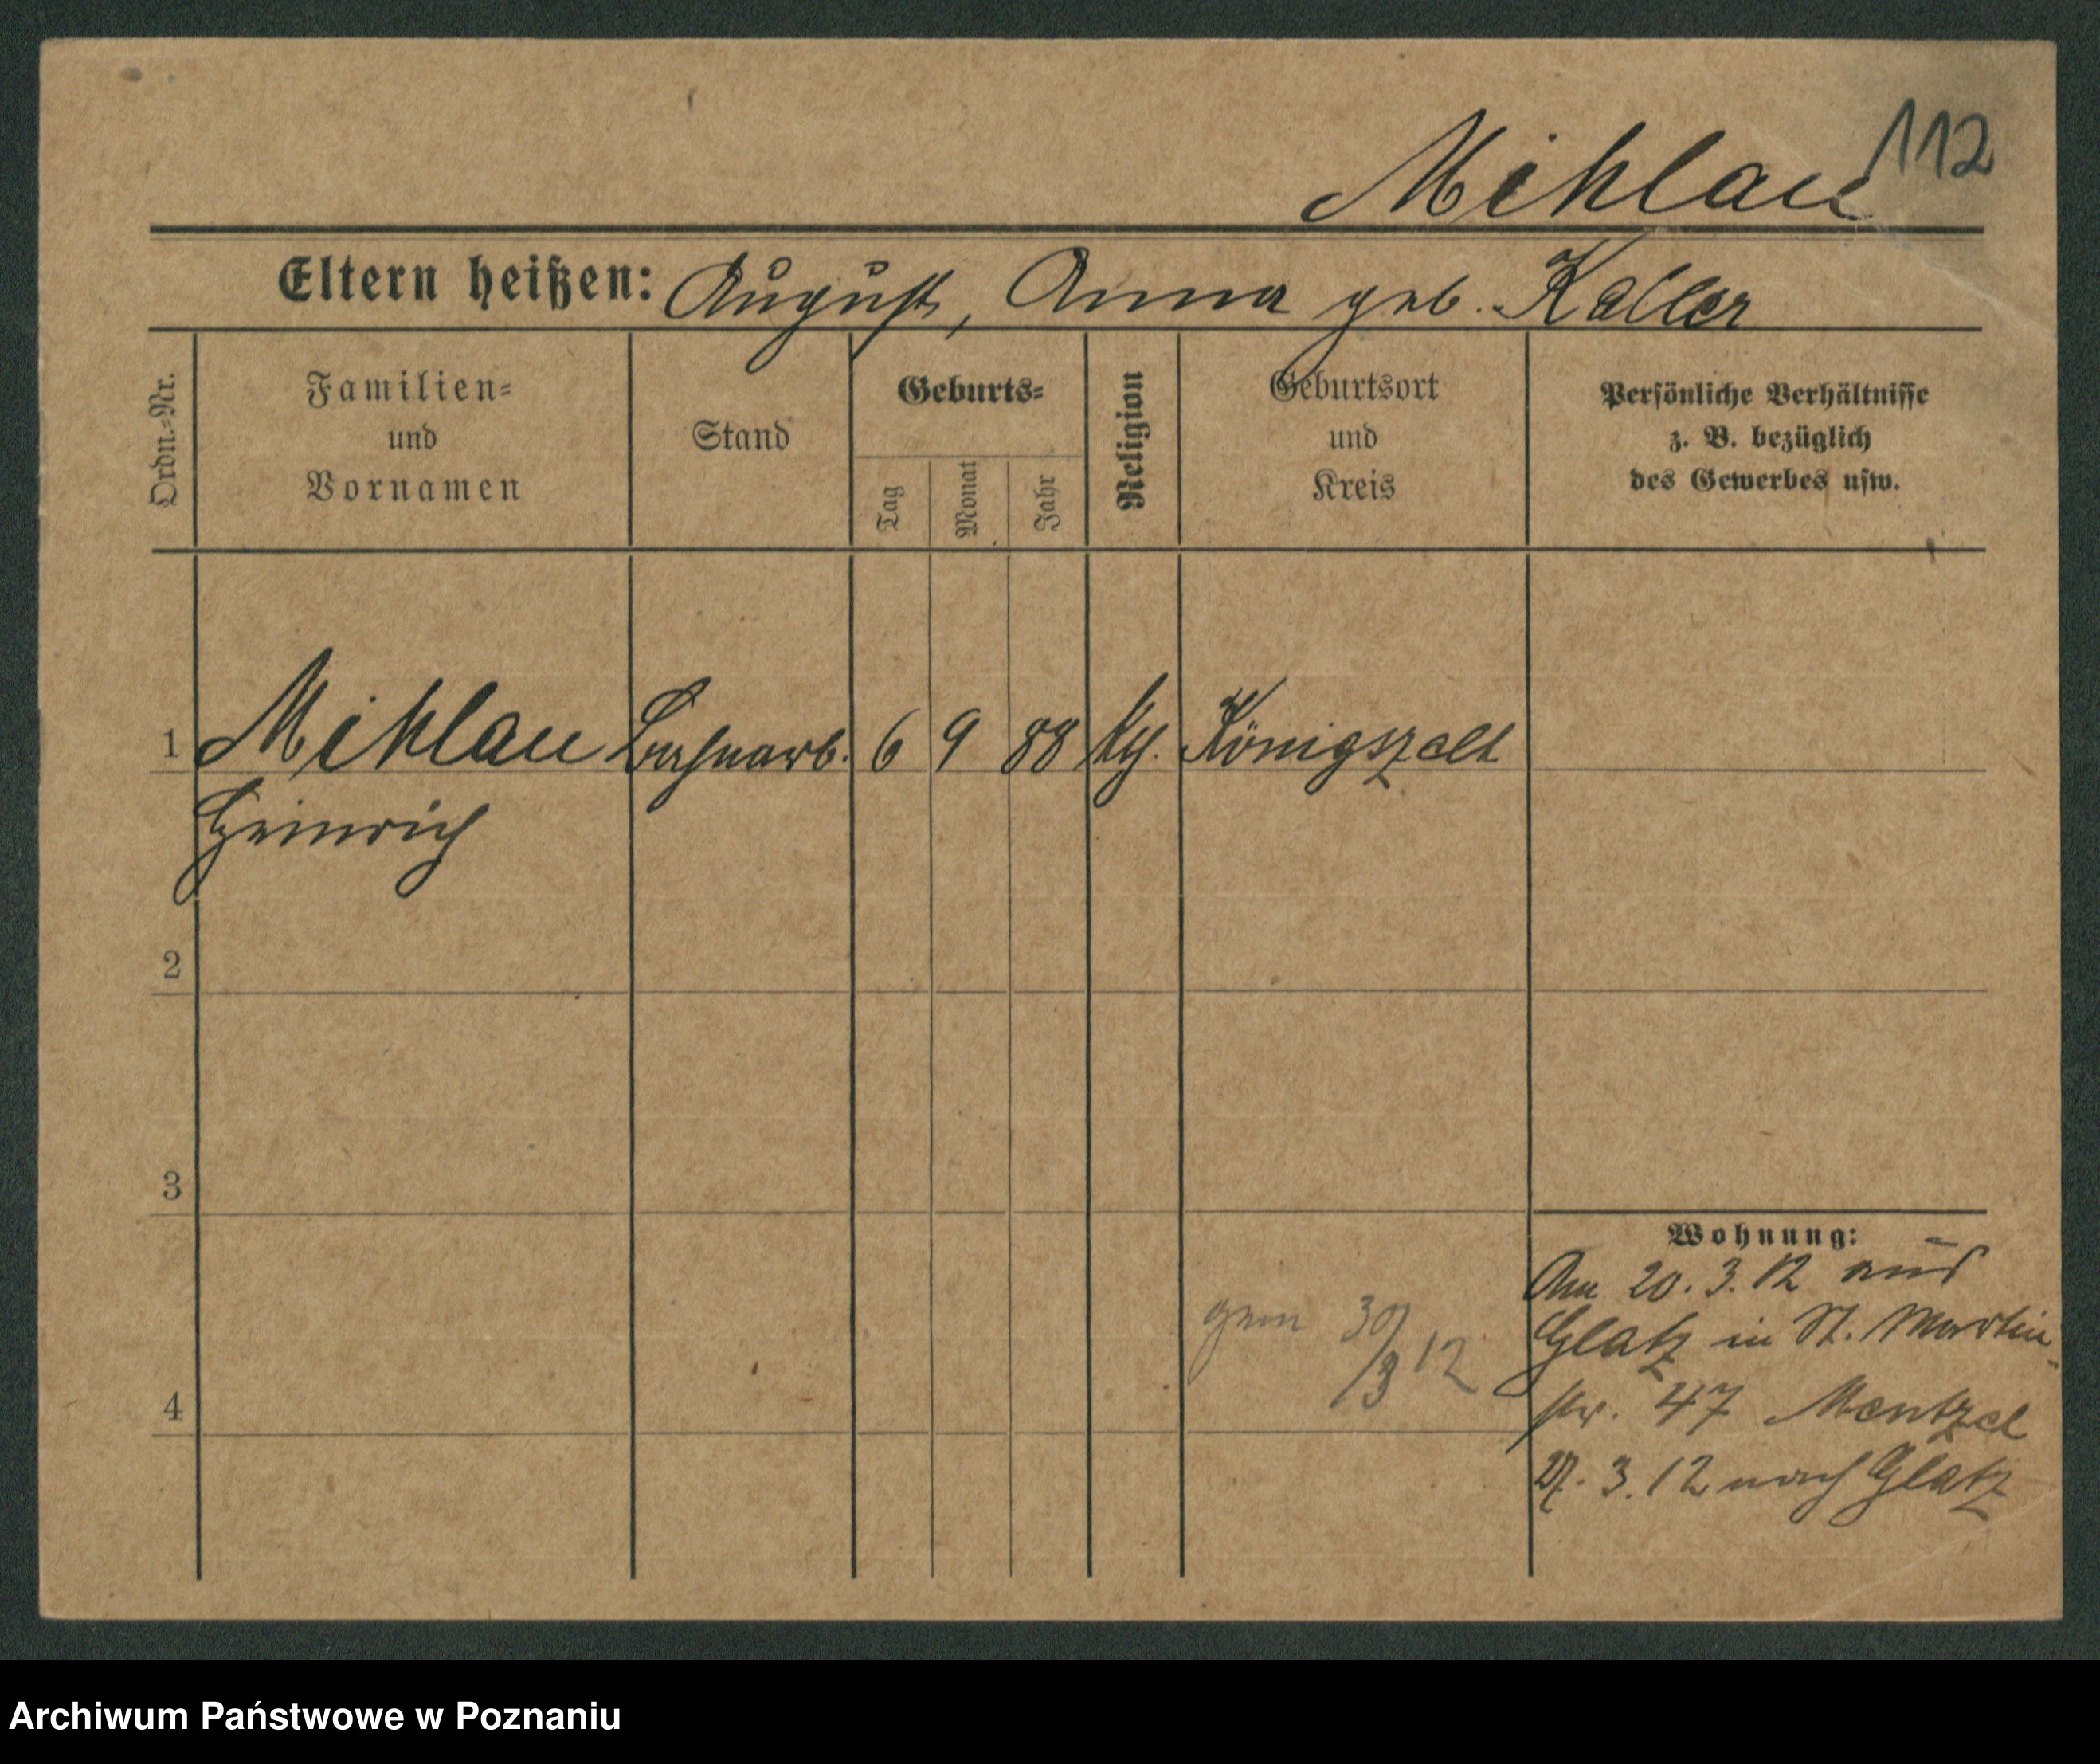 112
Mihlau
Eltern heißen: August, Anna geb. Kaller
Ordn.-Nr.
Familien-
und
Vornamen
Stand
Geburts-
Tag
Monat
Jahr
Religion
Geburtsort
und
Kreis
Persönliche Verhältnisse
z. B. bezüglich
des Gewerbes usw.
1 Mihlau 6 9 88 Königszelt
Heinrich
2
3
4
Wohnung:
Am 20. 3. 12 aus
Glatz in St. Martin
str. 47 Mentzel
27. 3. 12 nach Glatz
gem 30/3 12
Archiwum Państwowe w Poznaniu